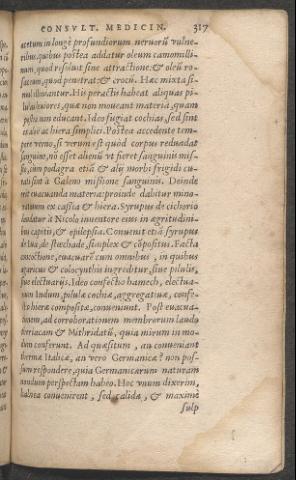 CONSVLT. MEDICIN. 317
acetum in longè profundiorum neruorũ vulne-
ribus, quibus postea addatur oleum camomilli-
num, quod resoluat sine attractione: & oleũ ro-
saceum, quod penetrat & crocũ. Hæc mixta si-
mul illinantur. His peractis habeat aliquas pi-
lulas leuiores, quæ non moueant materiã, quam
potius non educant. Ideo fugiat cochias, sed sint
ex aloë ac hiera simplici. Postea accedente tem-
pore verno, si verum est quòd corpus redundat
sanguine, nõ esset alienũ vt fieret sanguinis mis-
sio, cùm podagra etiã & alij morbi frigidi cu-
rati sint à Galeno missione sanguinis. Deinde
est euacuanda materia: proinde dabitur mino-
ratiuum ex cassia & hiera. Syrupus de cichorio
laudatur à Nicolo inuentore eius in ægritudini-
bus capitis, & epilepsia. Conuenit etiã syrupus
de stœchade, simplex & cõpositus. Facta
concoctione, euacuarẽ cum omnibus, in quibus
agaricus & colocynthis ingreditur, siue pilulis,
siue electuarijs. Ideo confectio hamech, electua-
rium Indum, pilulæ cochiæ, aggregatiuæ, confe-
ctio hieræ compositæ, conueniunt. Post euacua-
tionem, ad corroborationem membrorum laudo
theriacam & Mithridatũ, quia mirum in mo-
dum conferunt. Ad quæsitum, an conueniant
thermæ Italicæ, an vero Germanicæ? non pos-
sum respondere, quia Germanicarum naturam
nondum perspectam habeo. Hoc vnum dixerim,
balnea conuenirent, sed calida, & maximè
sulp